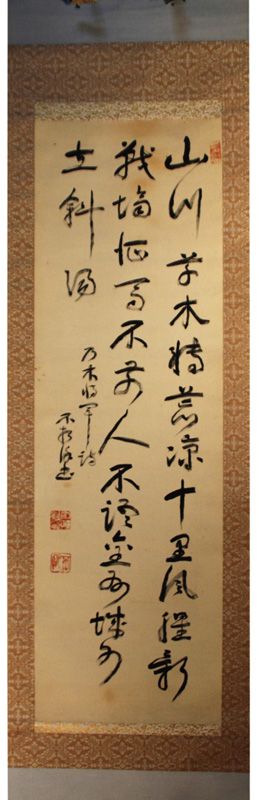 山川草木轉荒涼十里風腥新
戰場征馬不前人不語金州城外
立斜陽
乃木将軍詩
不 書